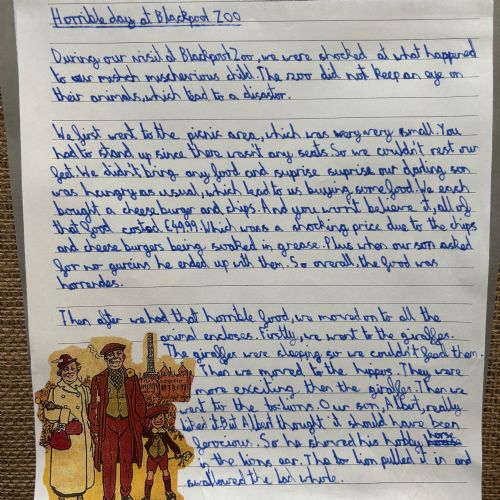 Horrible day at Blackpool ZOO
During our visit at Blackpool Zoo, we were shocked at what happened
to our mischievious child. The zoo did not keep an eye on
their animals, which lead to a disastor.
We first went to the picnic area, which was very very small. You
had to stand up since there wasn't any seats. So we couldn't rest our
feet. We didn't bring any food and suprise suprise our darling son
was hungry as usual, which lead to us buying some food. We each
bought a cheese burger and chips. And you won't believe it, all of
that food costed £49.99. Which was a shocking price due to the chips
and cheese burgers being in grease. Plus when our son asked
for no he ended up with them. So overall, the food was
horrendes.
Then after we had that horrible food, we moved on to all the
animal encloses. Firstly, we went to the giraffes.
The giraffes were sleeping so we couldn't feed them.
Then we moved to the hippos. They were
more exciting then the giraffes. Then we
went to the Our son, Albert, really
liked it. But Albert thought it should have been
ferocious. So he shoved his hobby horse
in the lions ear. The lion pulled it in and
swallowed the lad whole.